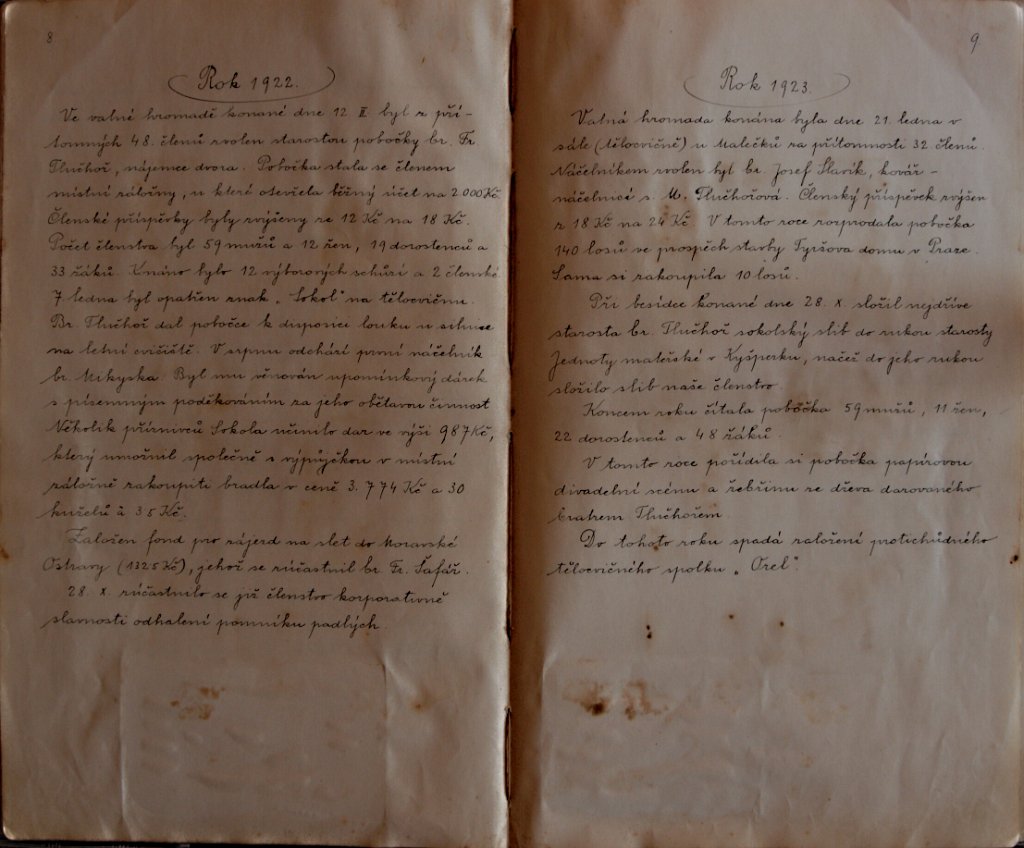 8
Rok 1922.
Ve valné hromadě konané dne 12 II byl z pří-
tomných 48 členů zvolen starostou pobočky br. Fr.
Tluchoř, nájemce dvora. Pobočka stala se členem
místní záložny, u které otevřela běžný účet na 2 000 Kč.
Členské příspěvky byly zvýšeny ze 12 Kč na 18 Kč.
Počet členstva byl 59 mužů a 12 žen, 19 dorostenců a
33 žáků. Konáno bylo 12 výborových schůzí a 2 členské
7 ledna byl opatřen znak „Sokol" na tělocvičnu.
Br. Tluchoř dal pobočce k disposici louku u silnice
na letní cvičiště. V srpnu odchází první náčelník
br. Mikyska. Byl mu věnován upomínkový dárek
s písemným poděkováním za jeho obětavou činnost
Několik příznivců Sokola učinilo dar ve výši 987 Kč,
který umožnil společně s výpůjčkou v místní
záložně zakoupiti bradla v ceně 3.774 Kč a 30
kuželů à 35 Kč.
Založen fond pro zájezd na slet do Moravské
Ostravy (1325 Kč), jehož se zúčastnil br. Fr. Šafář.
28. X. zúčastnilo se již členstvo korporativně
slavnosti odhalení pomníku padlých.
9.
Rok 1923.
Valná hromada konána byla dne 21. ledna v
sále (tělocvičně) u Malečků za přítomnosti 32 členů.
Náčelníkem zvolen byl br. Josef Slavík, kovář –
náčelnicí s. M. Tluchořová. Členský příspěvek zvýšen
z 18 Kč na 24 Kč. V tomto roce rozprodala pobočka
140 losů ve prospěch stavby Tyršova domu v Praze.
Sama si zakoupila 10 losů.
Při besídce konané dne 28. X. složil nejdříve
starosta br. Tluchoř sokolský slib do rukou starosty
Jednoty mateřské v Kyšperku, načež do jeho rukou
složilo slib naše členstvo.
Koncem roku čítala pobočka 59 mužů, 11 žen,
22 dorostenců a 48 žáků.
V tomto roce pořídila si pobočka papírovou
divadelní scénu a žebřinu ze dřeva darovaného
bratrem Tluchořem.
Do tohoto roku spadá založení protichůdného
tělocvičného spolku „Orel".